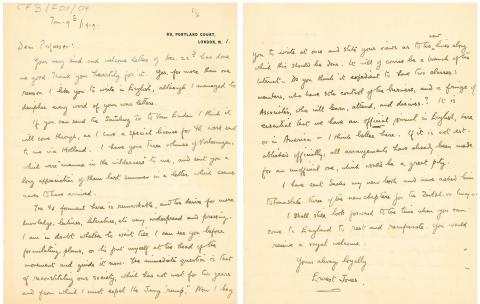 CFB/F01/09
69, PORTLAND COURT,
LONDON, W. 1.
Jan. 1919.
Dear Professor:
Your very kind and welcome letter of Dec. 22 has done
me good. Thank you heartily for it. Yes, for more than one
reason I like you to write in English, although I managed to
decipher every word of your letters.
If you can send the Sammlung to Van Emden I think it
will come through, as I have a special licence for the work sent
to me via Holland. I have your three volumes of Vorlesungen,
which were manna in the wilderness to me, and sent you a
long appreciation of them last summer in a letter which seems
never to have arrived.
The ΨA ferment here is remarkable, and the desire for more
knowledge, lectures, literature, etc very widespread and pressing.
I am in doubt whether to wait till I can see you before
formulating plans, or to put myself at the head of the
movement and guide it now. The immediate question is that
of reconstituting our society, which has not met for two years
and from which I must expel the Jung rump. Now I beg
you to write at once and state your views as to the best lines along
which this should be done. It will of course be a branch of the
Internat. Do you think it expedient to have two classes:
members, who have sole control of the business, and a fringe of
Associates, who will learn, attend, and discuss? It is
essential that we have an official journal in English, here
or in America – I think better here. If it is not est-
ablished officially, all arrangements have already been made
for an unofficial one, which would be a great pity.
I have sent Sachs my new book and have asked him
to translate three of the new chapters for the
I shall look forward to the time when you can
come to England to rest and recuperate. You would
receive a royal welcome.
Yours always loyally
Ernest Jones.